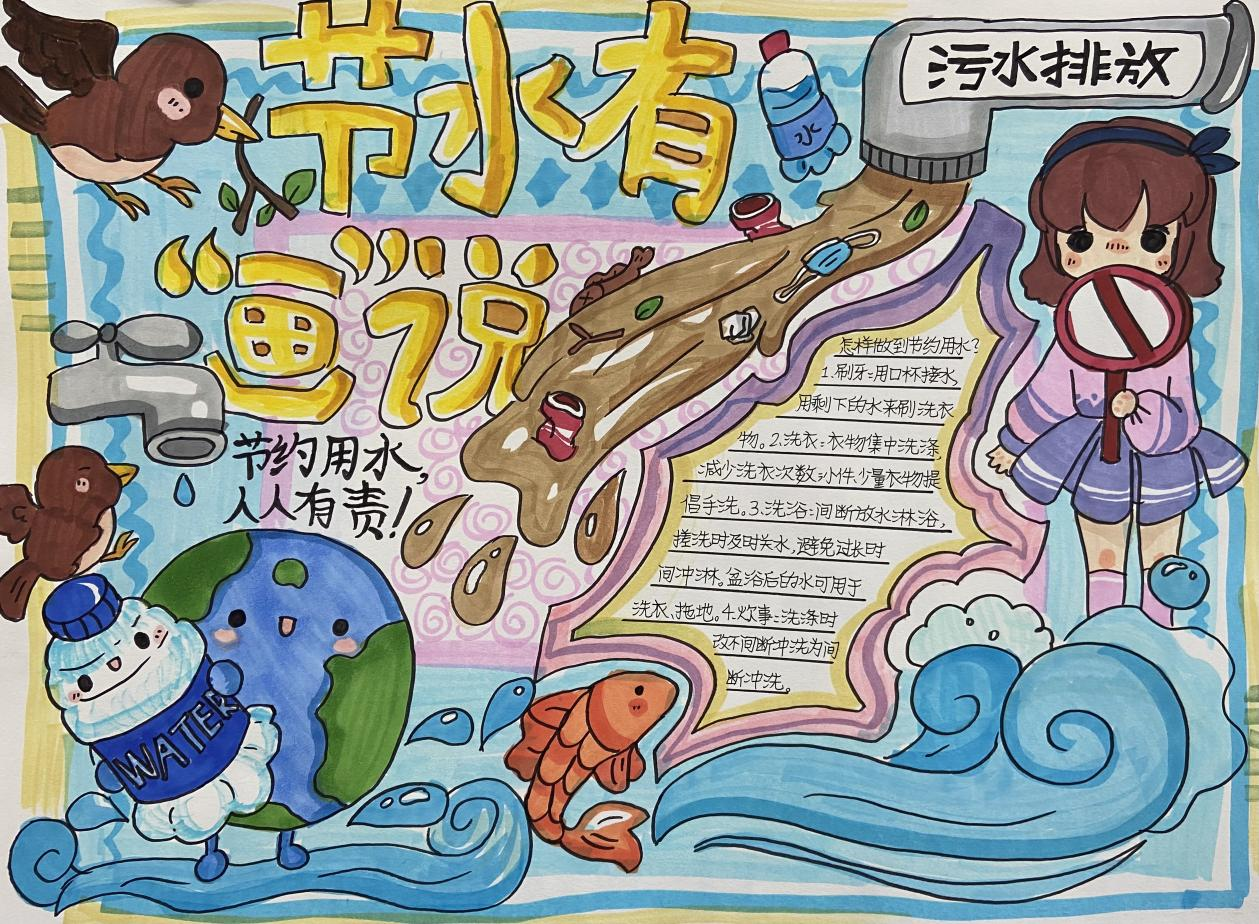 节水有
“画”说
水
污水排放
节约用水，
人人有责！
WATER
怎样做到节约用水？
1.刷牙：用口杯接水，
用剩下的水来刷洗衣
物。2.洗衣：衣物集中洗涤，
减少洗衣次数；小件、少量衣物提
倡手洗。3.洗浴：间断放水淋浴，
搓洗时及时关水，避免过长时
间冲淋。盆浴后的水可用于
洗衣、拖地。4.炊事：洗涤时
改不间断冲洗为间
断冲洗。